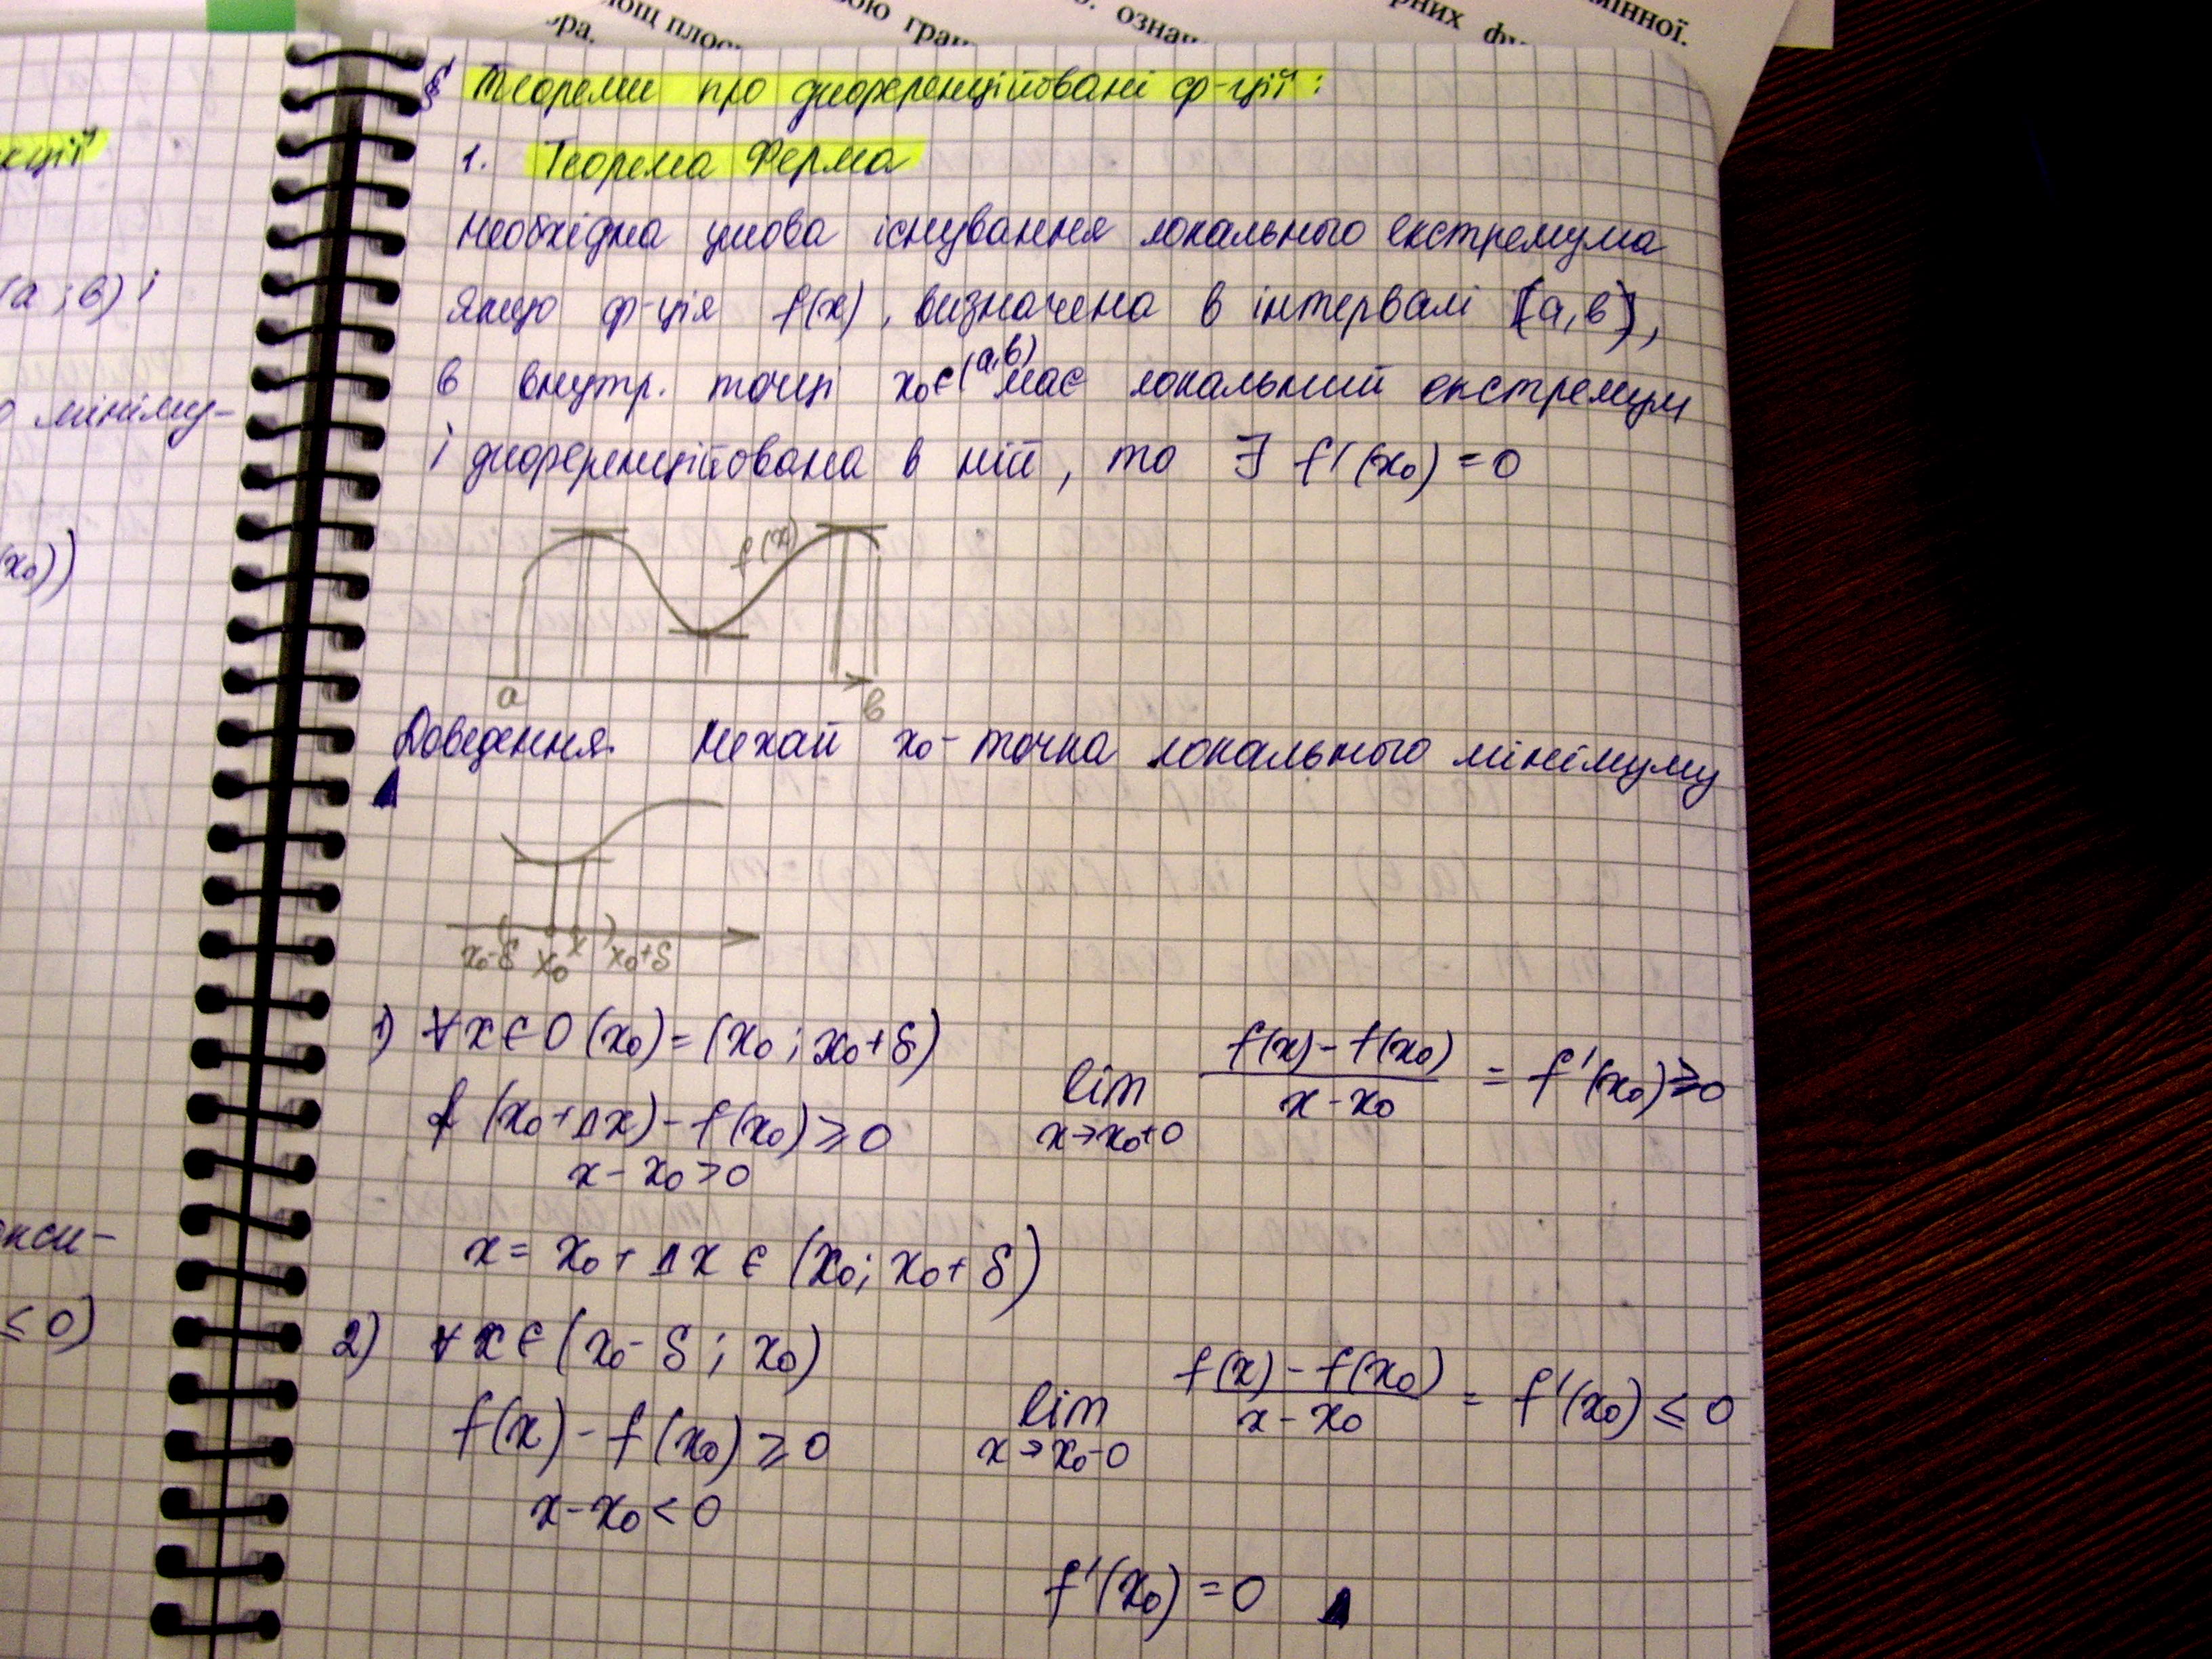 мінної.
ою гран
озна
рних фу
ощ плос
ра.
кції
(a ; в) і
о мініму-
(x₀))
кси-
≤ 0)
§ Теореми про диференційовані ф-ції:
1. Теорема Ферма
Необхідна умова існування локального екстремума
Якщо ф-ція f(x), визначена в інтервалі (a,в),
в внутр. точці x₀є(a,в) має локальний екстремум
і диференційована в ній, то ∃ f'(x₀) = 0
f(x)
a в
Доведення. Нехай x₀ - точка локального мінімуму
x₀-δ x₀ x x₀+δ
1) ∀x є O(x₀) = (x₀ ; x₀+δ)
f (x₀+Δx) - f(x₀) ≥ 0
x - x₀ > 0
lim x→x₀+0 f(x) - f(x₀) / x - x₀ = f'(x₀) ≥ 0
x = x₀ + Δx є (x₀; x₀+δ)
2) ∀x є (x₀ - δ ; x₀)
f(x) - f(x₀) ≥ 0
x - x₀ < 0
lim x→x₀-0 f(x) - f(x₀) / x - x₀ = f'(x₀) ≤ 0
f'(x₀) = 0